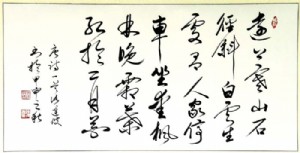 遠上寒山石
徑斜 白雲生
處有人家停
車坐愛楓
林晚霜葉
紅於二月花